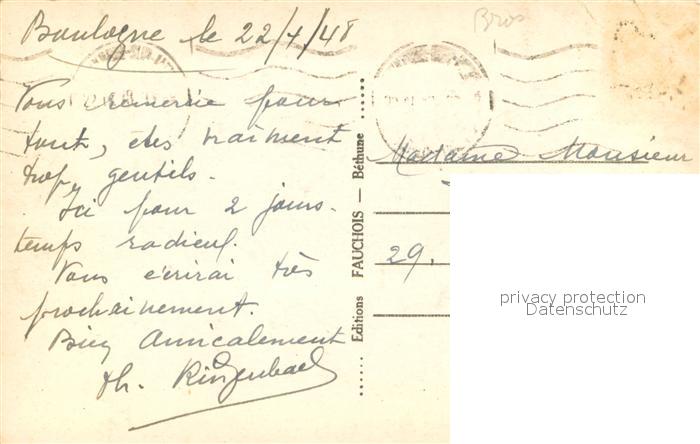 Boulogne le 22/4/48
Bros
Vous remercie pour
tout, êtes vraiment
trop gentils.
Ici pour 2 jours.
temps radieux.
Vous écrirai très
prochainement.
Bien Amicalement
Th. Ringenbach
Editions FAUCHOIS — Béthune
Madame Monsieur
29.
privacy protection
Datenschutz